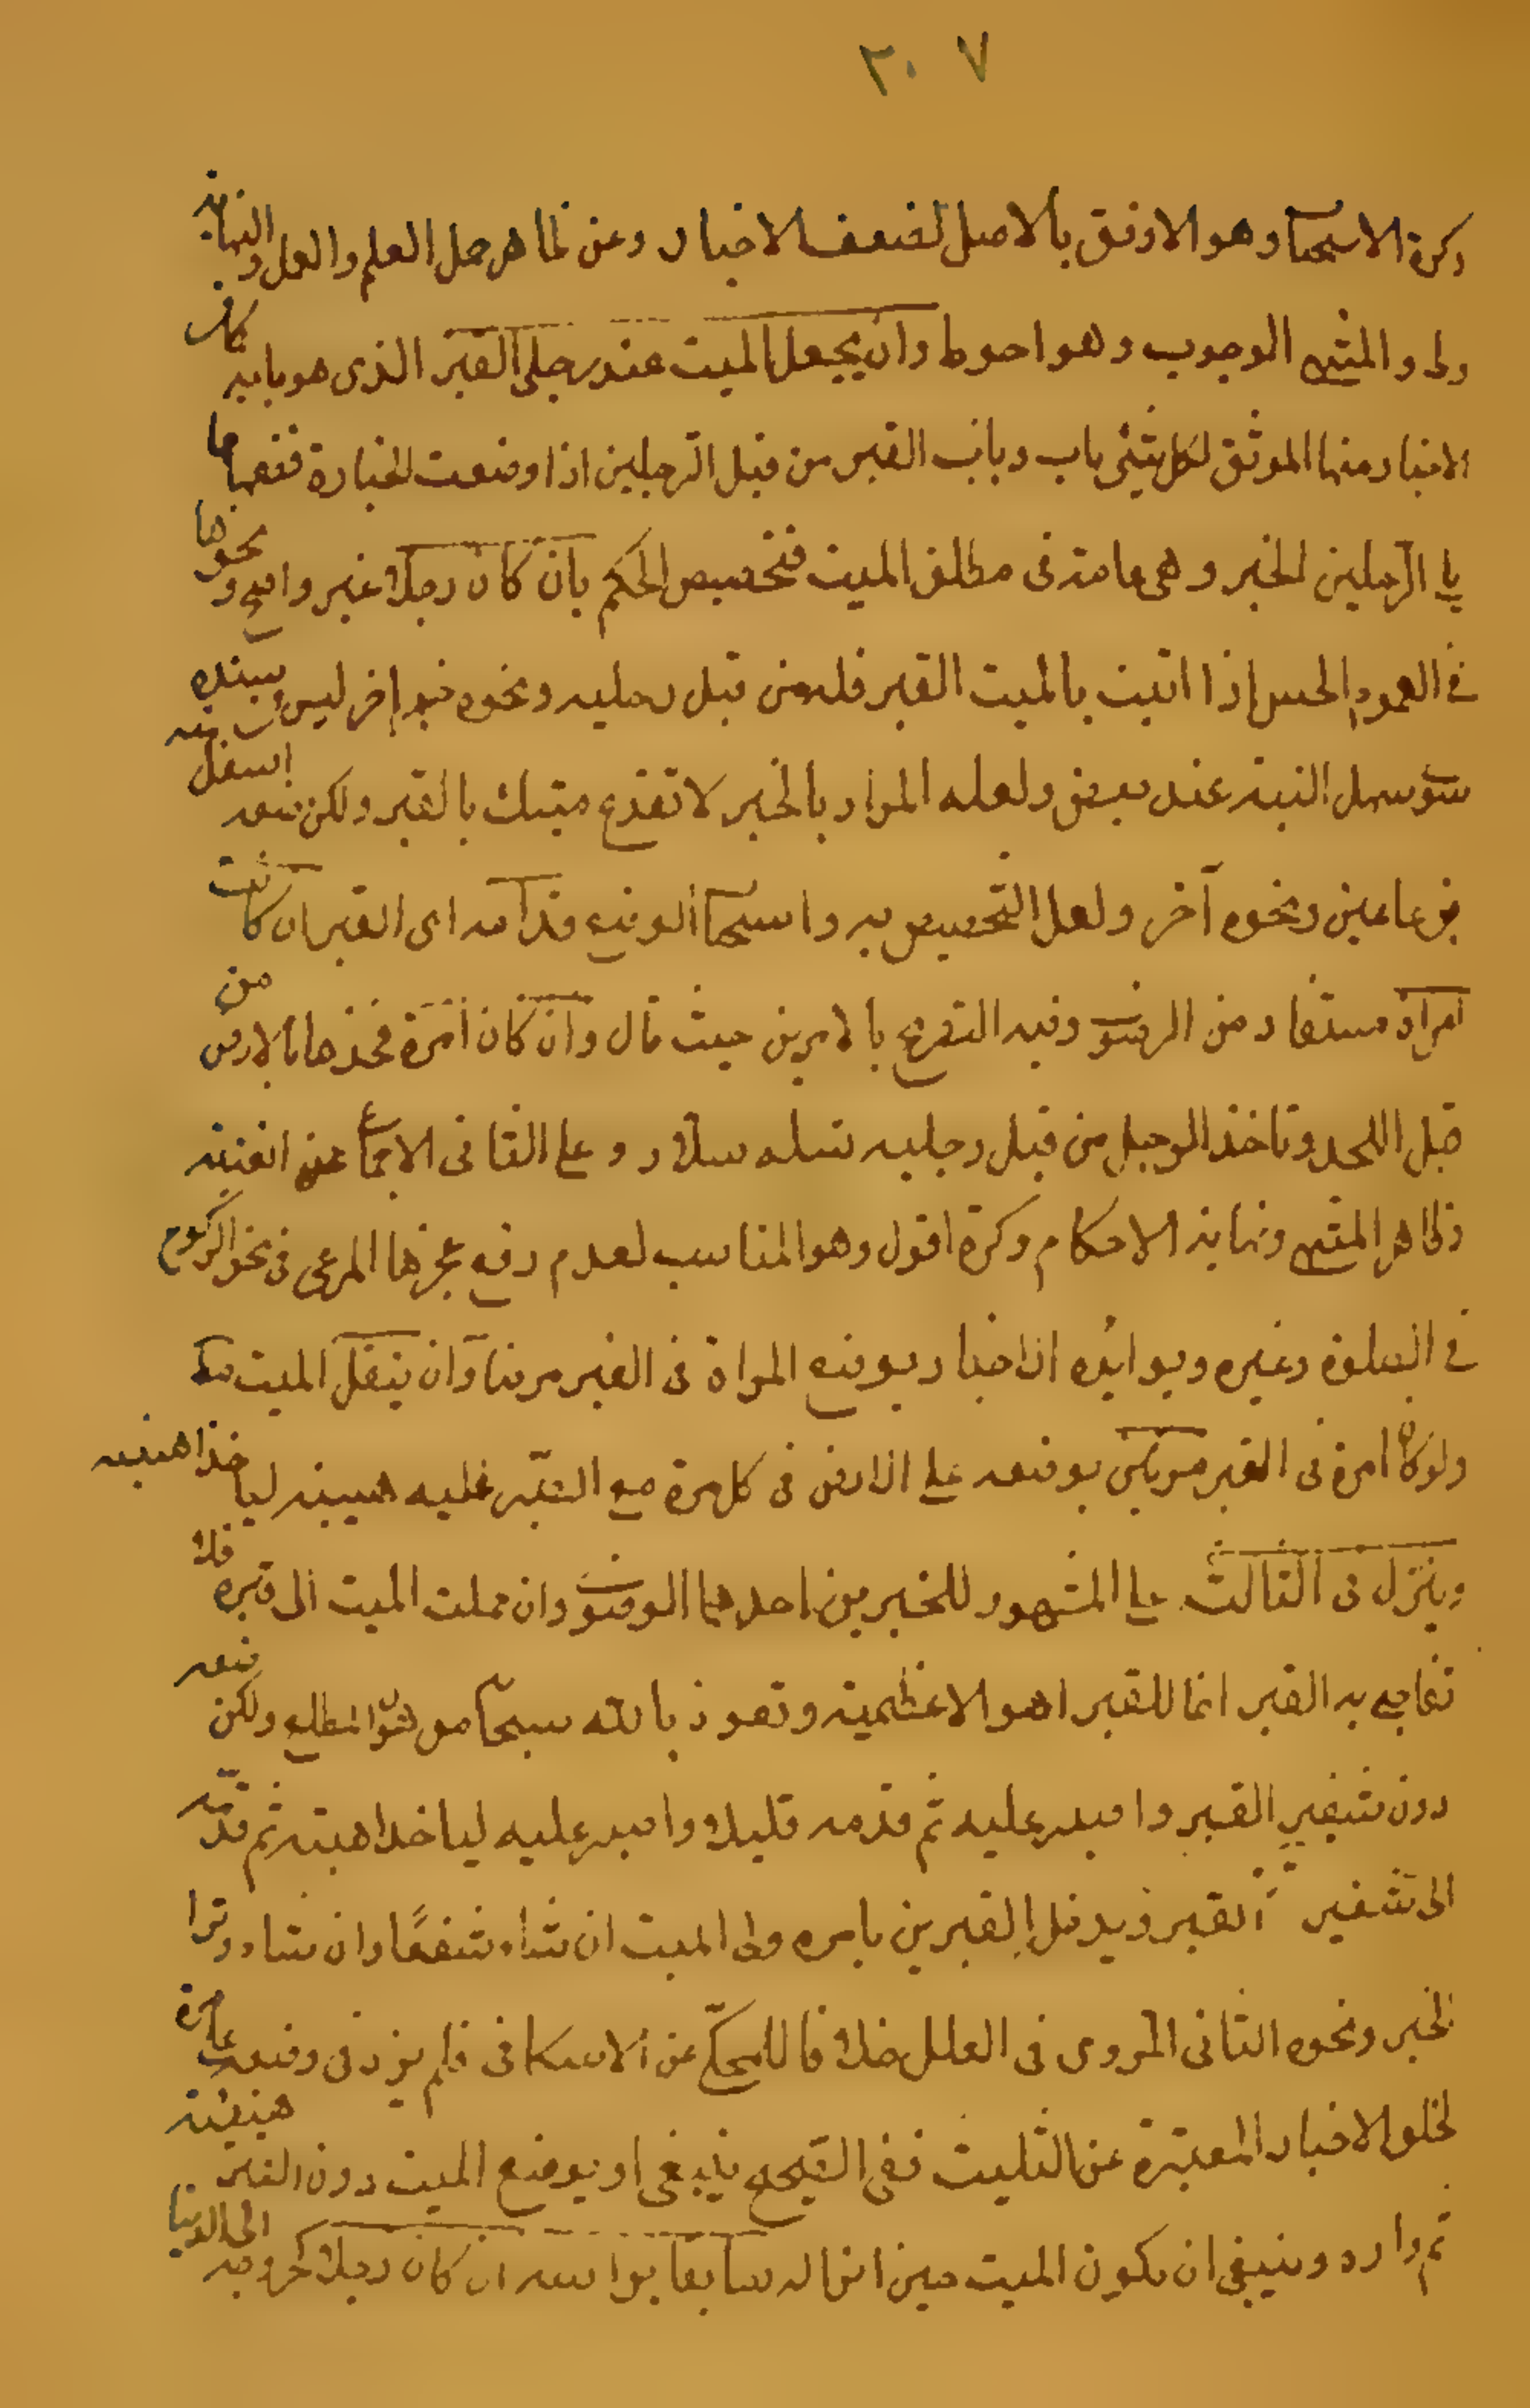 ٣٠٧
وكره الاستحباب وهو الاوفق بالاصل لضعف الاخبار وعن ظاهر جمل العلم والعمل والنهاية
وط والمنتهى الوجوب وهو احوط وان يجعل الميت عند رجلي القبر الذي هو بابه كما في
الاخبار منها الموثق لكل شئ باب وباب القبر من قبل الرجلين اذا وضعت الجنازة فضعها مما
يلي الرجلين الخبر وهي عامة في مطلق الميت فتخصيص الحكم بان كان رجلا غير واضح ونحوها
في العموم الحسن إذا اتيت بالميت القبر فسله من قبل رجليه ونحوه خبر آخر ليس في سنده
سوى سهل الثقة عند بعض ولعله المراد بالخبر لا تفدح ميتك بالقبر ولكن ضعه اسفل منه
بذراعين ونحوه آخر ولعل التخصيص به واستحباب الوضع قدامه اى القبر ان كانت
امراة مستفاد من الرضوى وفيه التصريح بالامرين حيث قال وان كان امرة فخذها بالارض من
قبل اللحد وتاخذ الرجل من قبل رجليه تسله سلا وعلى الثاني الاجماع عن الغنية
وظاهر المنتهى ونهاية الاحكام وكره اقول وهو المناسب لعدم رفع عجزها المرعى في نحو الركوع
في الصلوة وغيره ويوايده الاخبار بوضع المراة في القبر عرضا وان ينقل الميت
ولو كان امرة في القبر مرتين بوضعه على الارض في كل مرة مع الصبر عليه هنيئة لياخذ اهبته
وينزل في الثالث على المشهور للخبرين احدهما الرضوى وان حملت الميت الى قبره فلا
تفاجئ به القبر انما للقبر اهوالا عظيمة وتعوذ بالله سبحانه من هول المطلع ولكن ضعه
دون شفير القبر واصبر عليه ثم قدمه قليلا واصبر عليه لياخذ اهبته ثم قدمه
الى شفير القبر ويدخل القبر من يامره ولى الميت ان شاء شفعا وان شاء وترا
الخبر ونحوه الثانى المروى في العلل خلافا للمحكى عن الاسكافى فلم يزد في وضعه على مرة
لخلو الاخبار المعتبرة عن التثليث ففى الصحيح ينبغى ان يوضع الميت دون القبر هنيئة
ثم واره وينبغى ان يكون الميت حين انزاله سابقا براسه ان كان رجلا كخروجه الى الدنيا